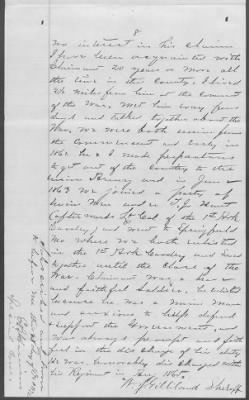 8
no interest in his claim
I have been acquainted with
Claimant 20 years or more all
the time in this County. I lived
2½ miles from him at the comment
of the War, met him every few
days and talked together about the
War, we were both union from
the commencement and early in
1862 he & I made preparations
to get out of the country to the
union lines and in June
1863 we joined a party of
union Men under T. J. Hunt
(afterwards Lt Col of the 1st Ark
Cavalry) and went to Springfield
Mo where we both enlisted
in the 1st Ark Cavalry and served
together until the close of the
War. Claimant was a true
and faithful Soldier. He enlisted
because he was a union man
and anxious to help defend
& support the Government, and
was always prompt and faith
ful in the discharge of his duty
He was honorably discharged with
his Regiment in Aug 1865.
W. J. Gilliland Sheriff